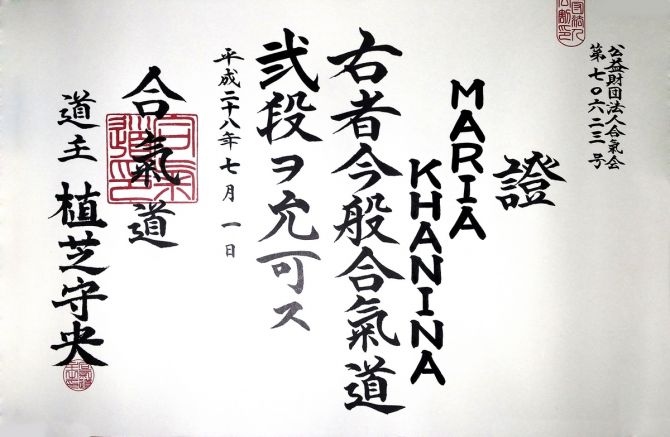 公益財団法人合氣会
第七〇六二三号
證
MARIA
KHANINA
右者今般合氣道
弐段ヲ允可ス
平成二十八年七月一日
合氣道
道主 植芝守央